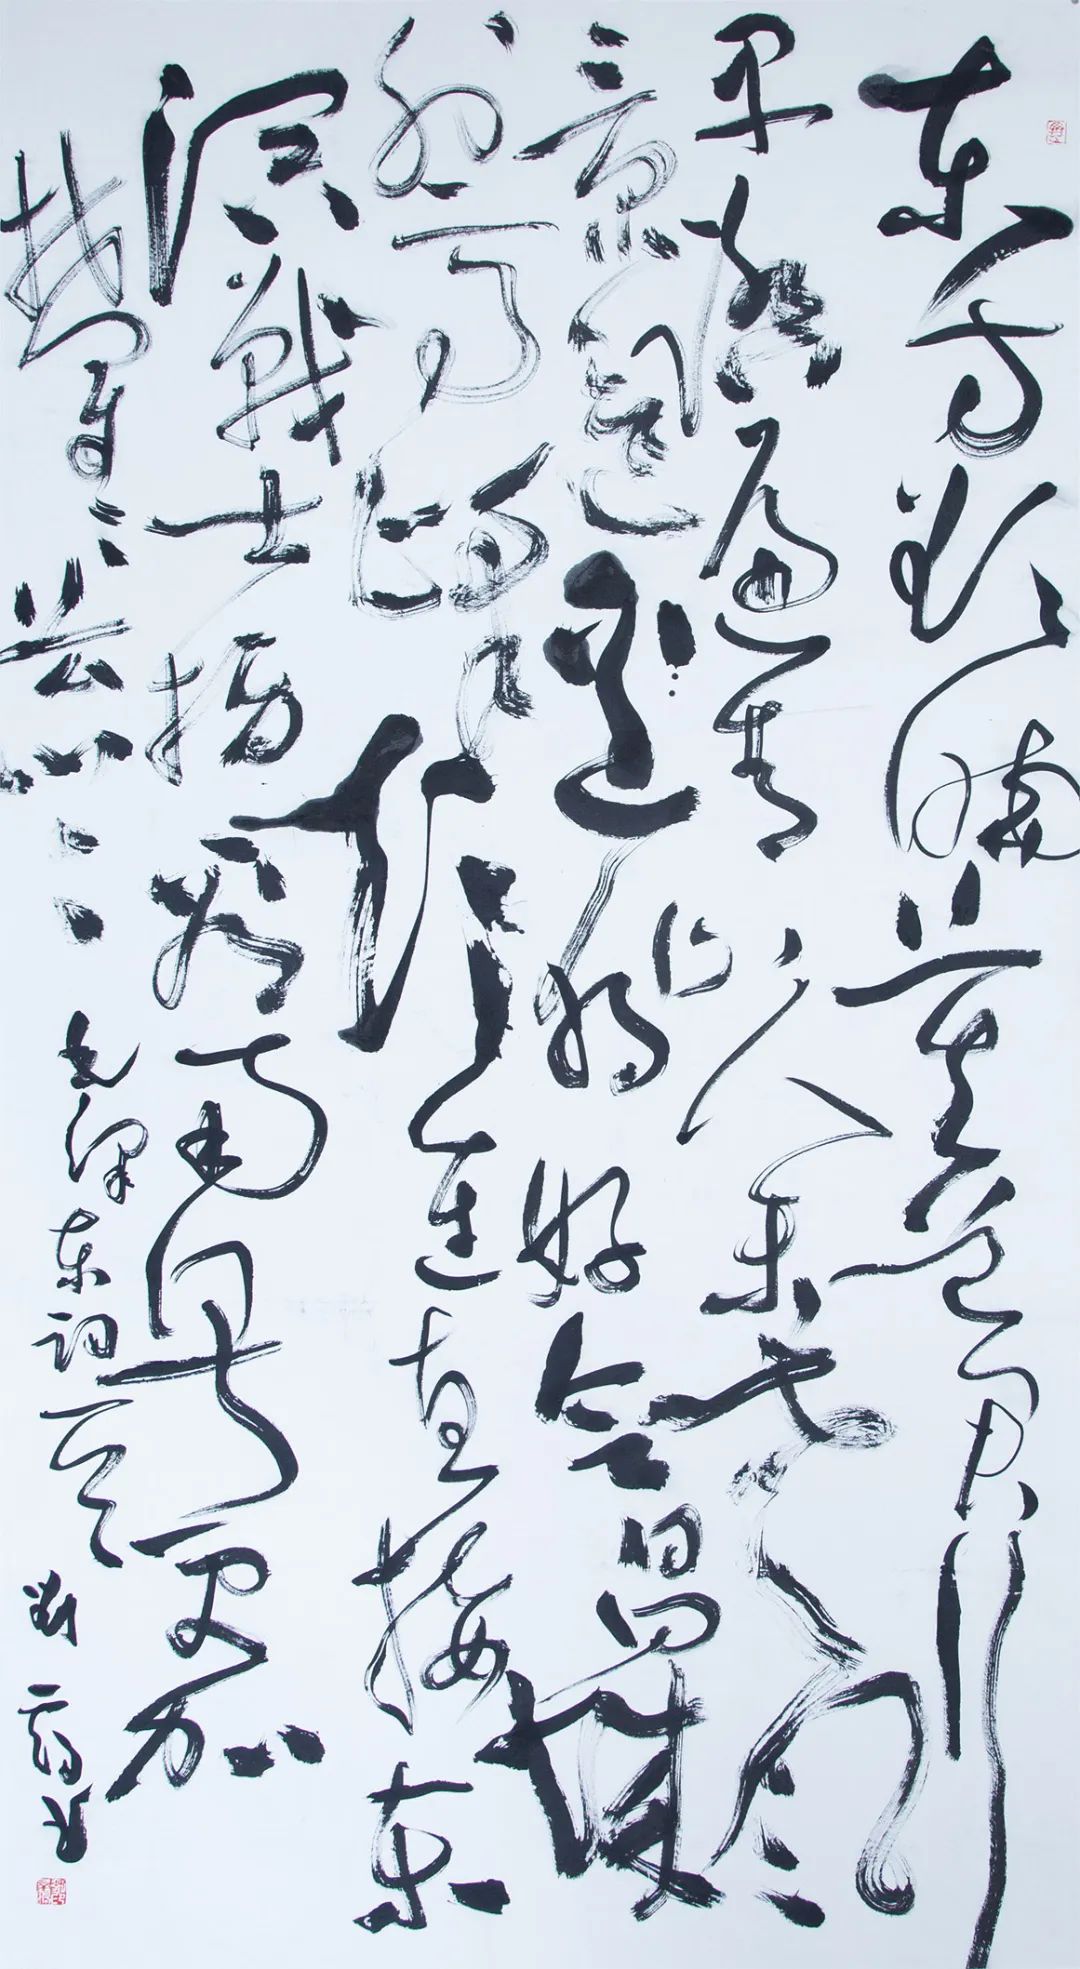 东方欲晓莫道君行
早踏遍青山人未老风
景这边独好会昌城
外高峰颠连直接东
溟战士指看南粤更加
郁郁葱葱 毛泽东词